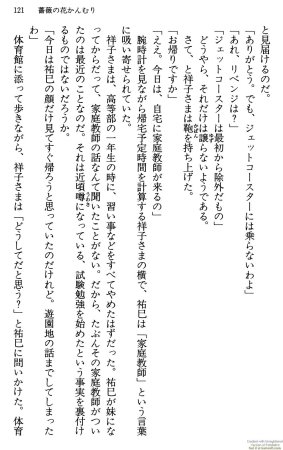 121　薔薇の花かんむり
と見届けるのだ。
「ありがとう。でも、ジェットコースターには乗らないわよ」
「あれ、リベンジは？」
「ジェットコースターは最初から除外だもの」
どうやら、それだけは譲らないようである。
さて、と祥子さまは鞄を持ち上げた。
「お帰りですか」
「ええ。今日は、自宅に家庭教師が来るの」
腕時計を見ながら帰宅予定時間を計算する祥子さまの横で、祐巳は「家庭教師」という言葉
に吸い寄せられていた。
祥子さまは、高等部の一年生の時に、習い事などをすべてやめたはずだった。祐巳が妹にな
ってからだって、家庭教師の話なんて聞いたことがない。だから、たぶんその家庭教師がつい
たのは最近のことなのだ。それは近頃噂になっている、試験勉強を始めたという事実を裏付け
るものではないだろうか。
「今日は祐巳の顔だけ見てすぐ帰ろうと思っていたのだけれど。遊園地の話までしてしまった
わ」
体育館に添って歩きながら、祥子さまは「どうしてだと思う？」と祐巳に問いかけた。体育